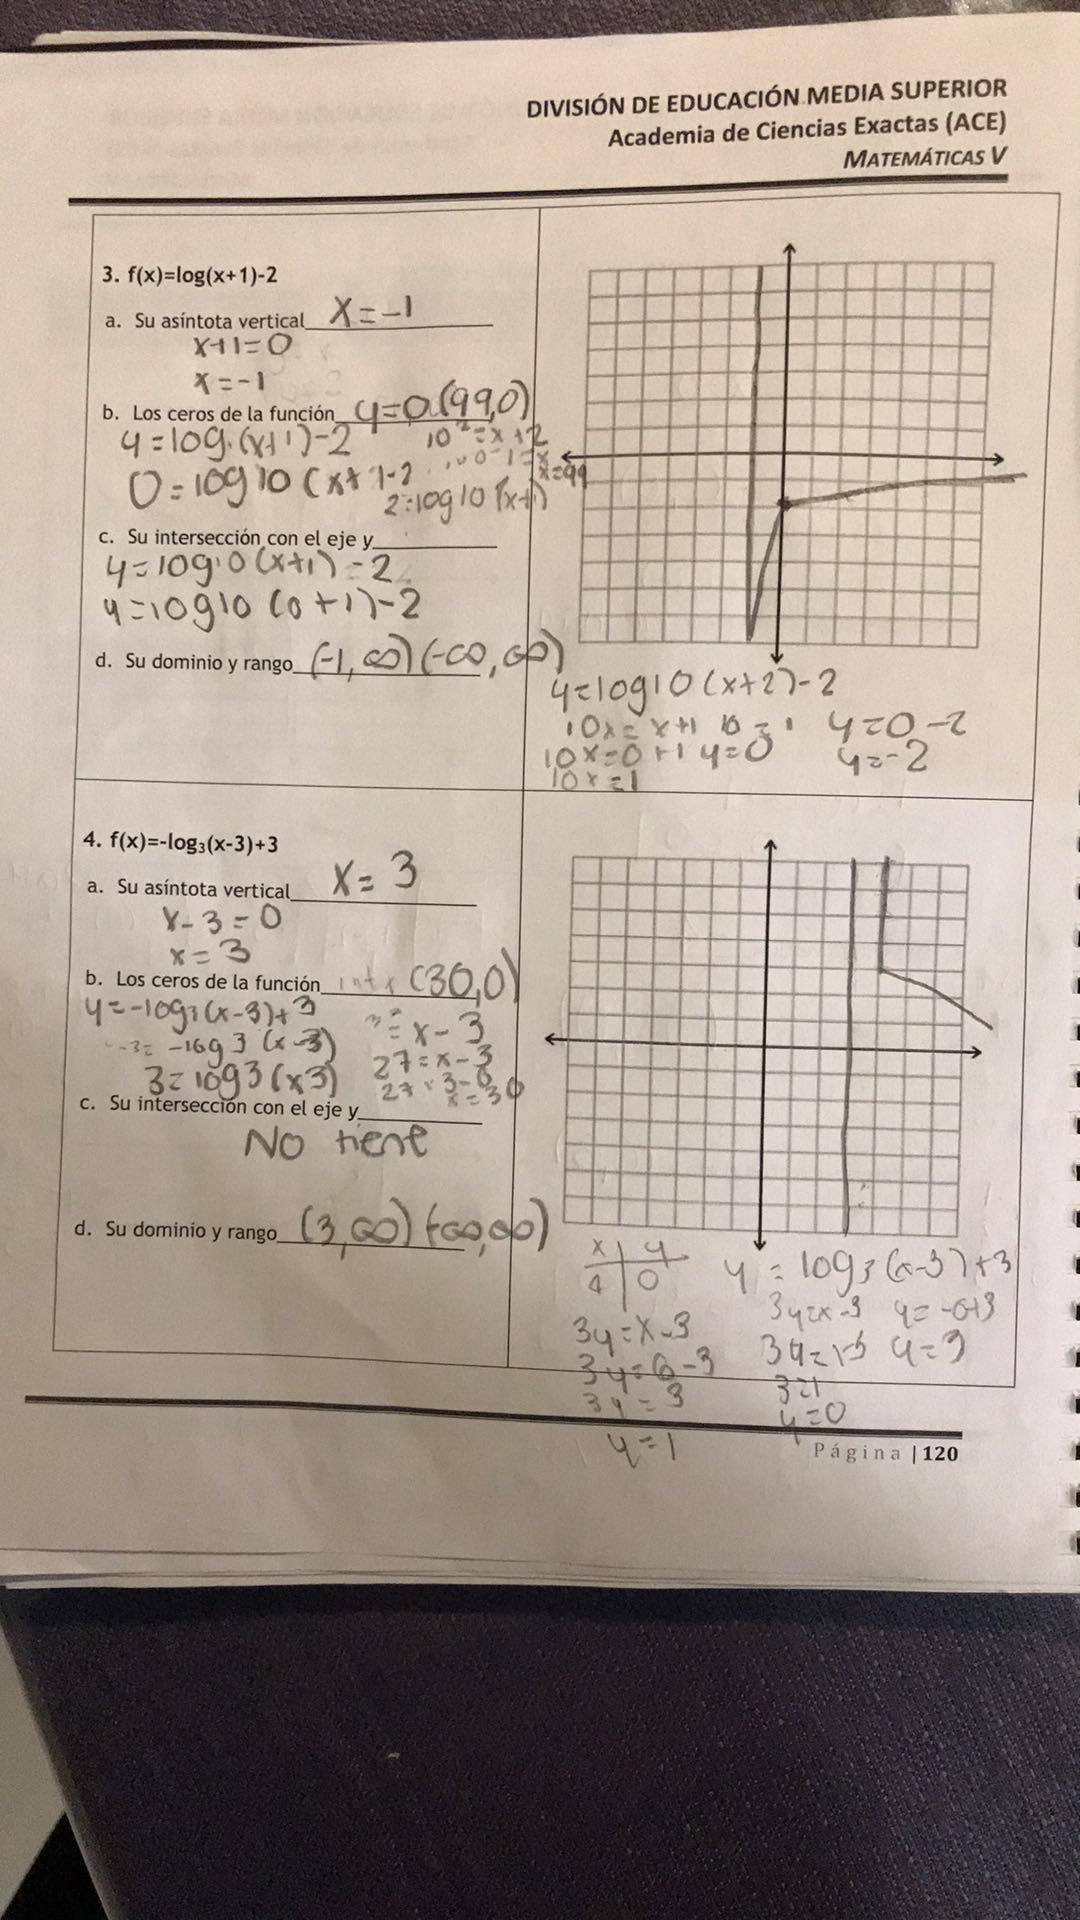 DIVISIÓN DE EDUCACIÓN MEDIA SUPERIOR
Academia de Ciencias Exactas (ACE)
MATEMÁTICAS V
3. f(x)=log(x+1)-2
a. Su asíntota vertical x=-1
x+1=0
x=-1
b. Los ceros de la función y=0 (99,0)
y=log.(x+1)-2
10²=x+2
100-1=x
x=99
0=log10(x+1-2
2=log10(x+1)
c. Su intersección con el eje y
y=log10(x+1)-2
y=log10(0+1)-2
d. Su dominio y rango (-1,∞)(-∞,∞)
y=log10(x+2)-2
10x=x+1 10=1 y=0-2
10x=0+1 y=0 y=-2
10x=1
4. f(x)=-log₃(x-3)+3
a. Su asíntota vertical x=3
x-3=0
x=3
b. Los ceros de la función int x (30,0)
y=-log3(x-3)+3
-3=-log3(x-3)
3=log3(x3)
=x-3
27=x-3
x=30
c. Su intersección con el eje y
No tiene
d. Su dominio y rango (3,∞)(-∞,∞)
x y
4 0
3y=x-3
3y=6-3
3y=3
y=1
y=log3(x-3)+3
3y=x-3 y=-0+3
y=3
3=1
y=0
Página | 120